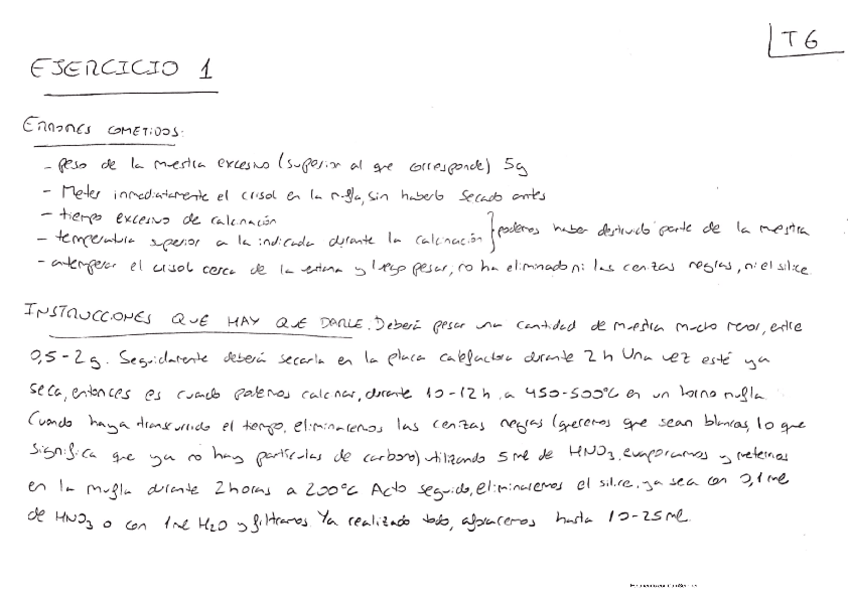 T6
EJERCICIO 1
ERRORES COMETIDOS:
- peso de la muestra excesivo (superior al que corresponde) 5g
- Meter inmediatamente el crisol en la mufla, sin haberlo secado antes
- tiempo excesivo de calcinación
- temperatura superior a la indicada durante la calcinación } podemos haber destruido parte de la muestra
- atemperar el crisol cerca de la ventana y luego pesar, no ha eliminado ni las cenizas negras, ni el sílice
INSTRUCCIONES QUE HAY QUE DARLE. Deberá pesar una cantidad de muestra mucho menor, entre
0,5-2g. Seguidamente deberá secarla en la placa calefactora durante 2h Una vez esté ya
seca, entonces es cuando podemos calcinar, durante 10-12h a 450-500°C en un horno mufla
Cuando haya transcurrido el tiempo, eliminaremos las cenizas negras (queremos que sean blancas, lo que
significa que ya no hay partículas de carbono) utilizando 5ml de HNO3, evaporamos y metemos
en la mufla durante 2horas a 200°C Acto seguido, eliminaremos el sílice, ya sea con 0,1ml
de HNO3 o con 1ml H2O y filtramos. Ya realizado todo, aforaremos hasta 10-25ml.